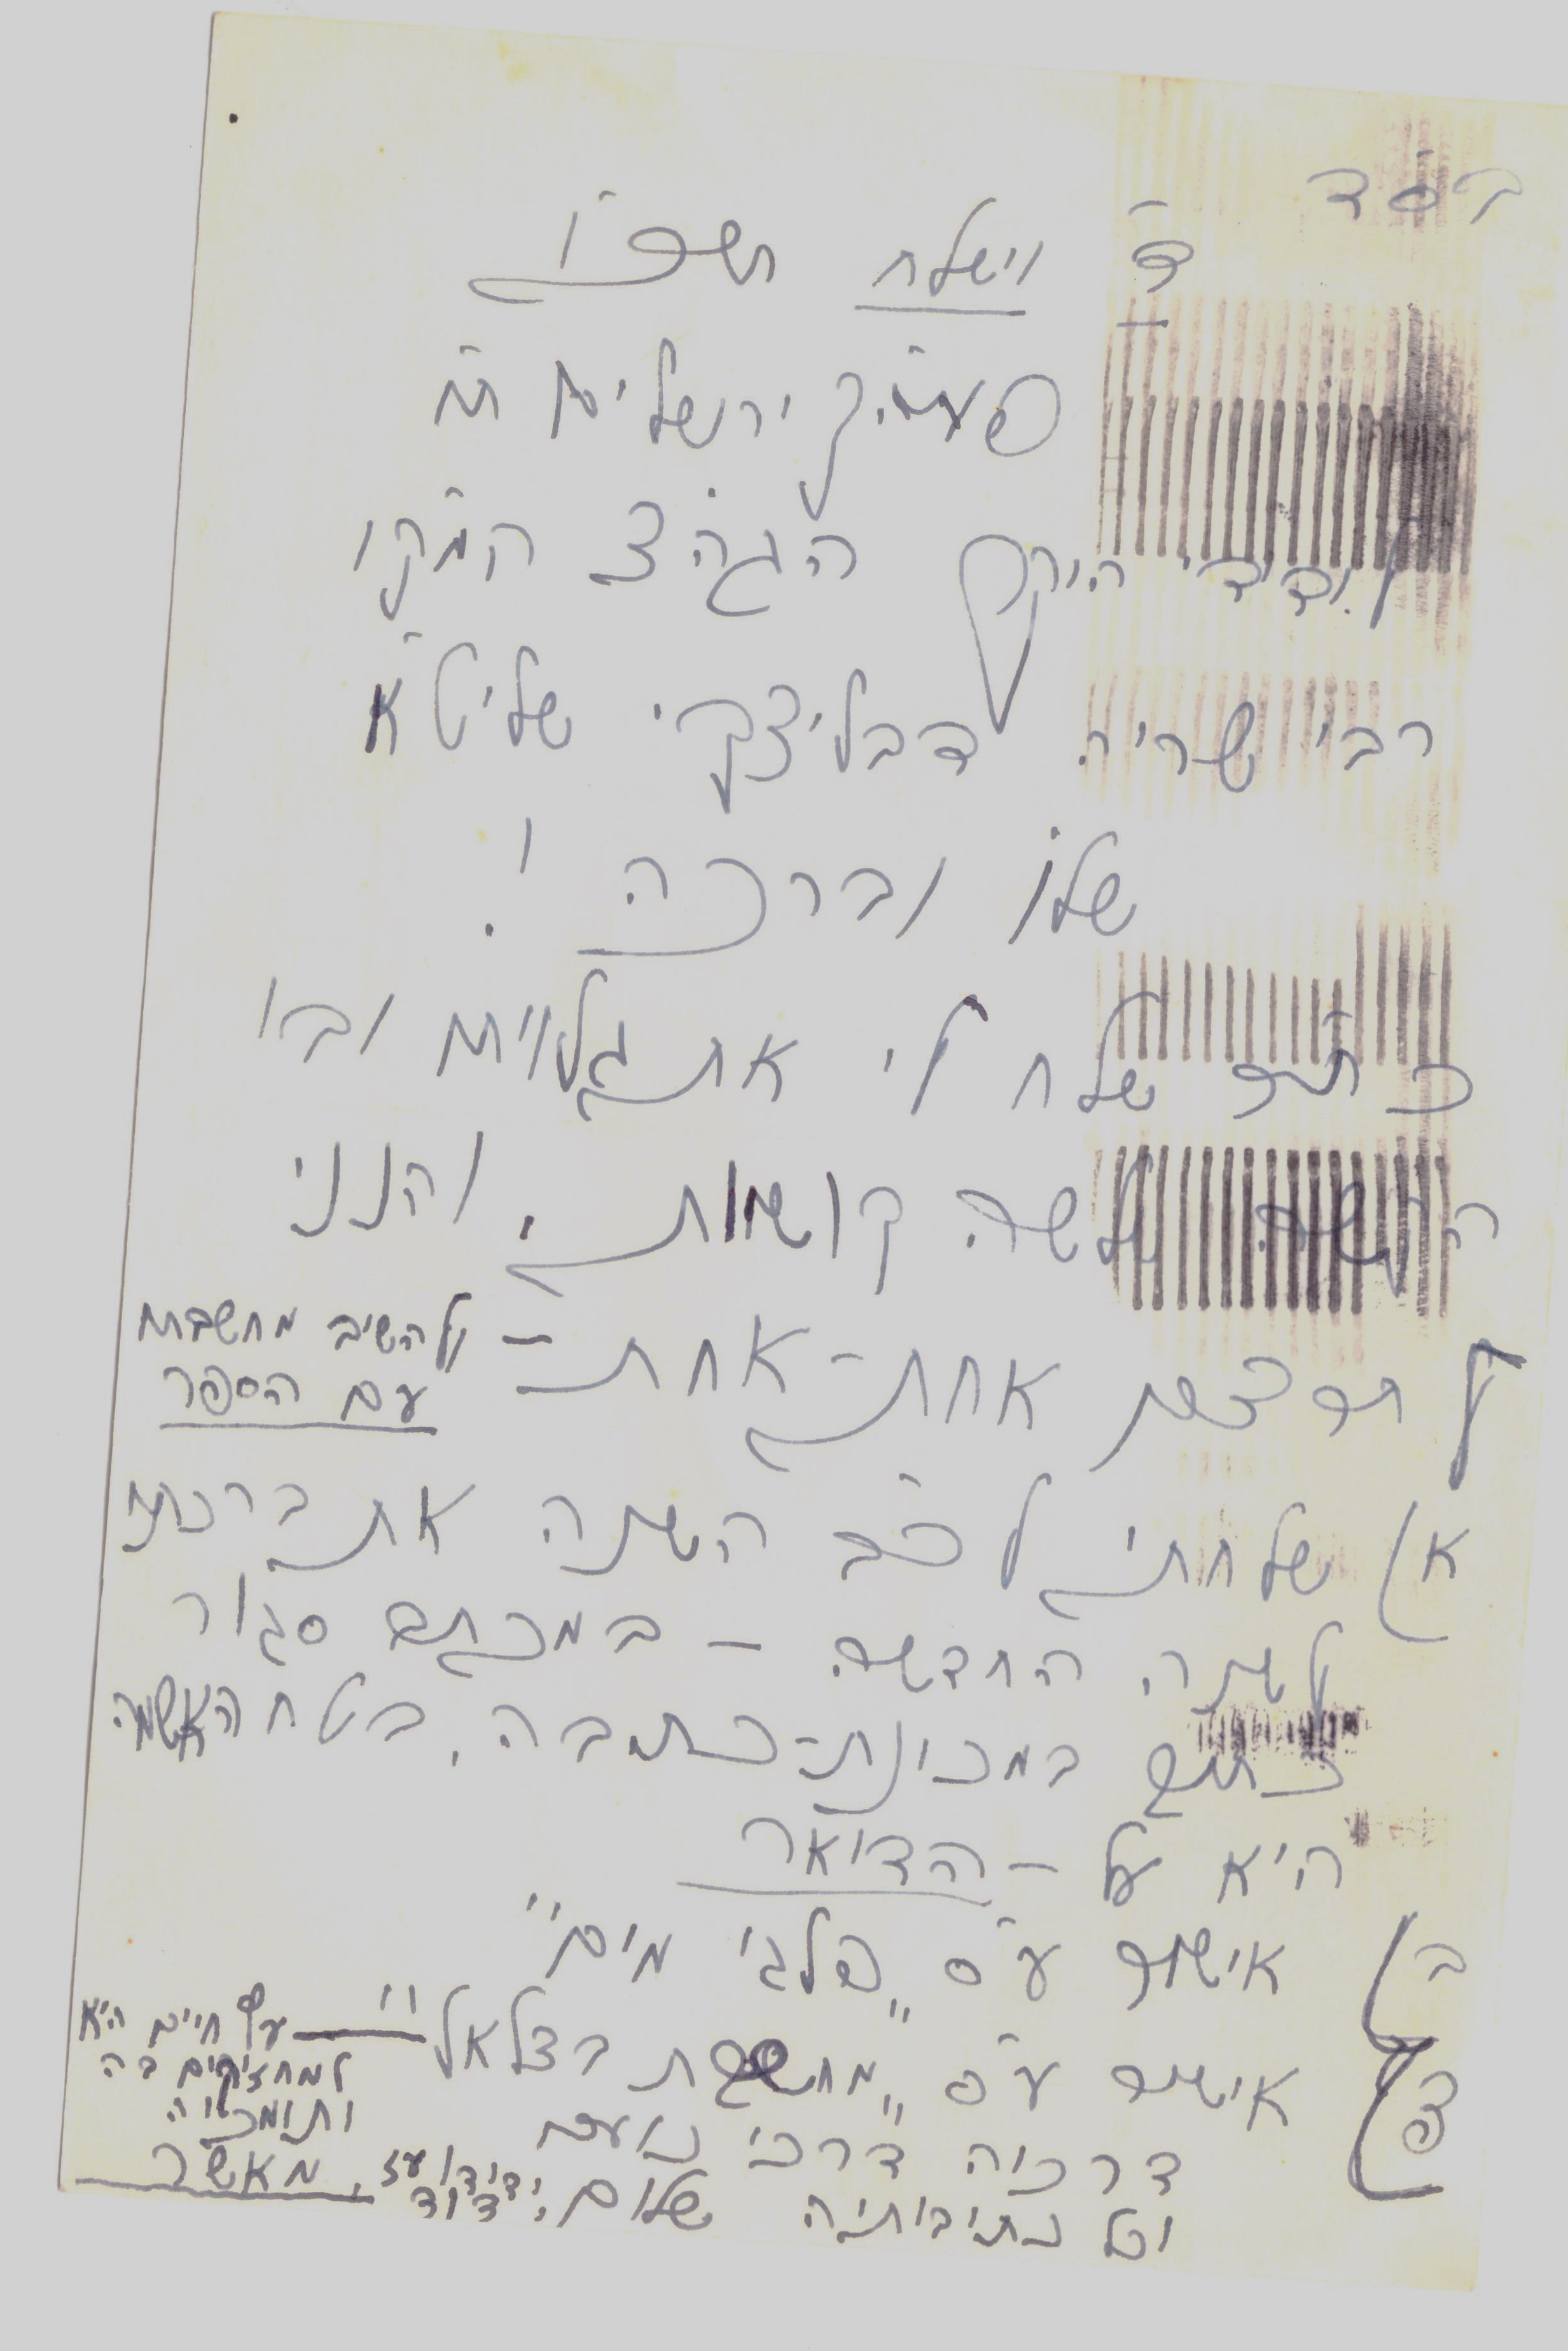 בס"ד
ד' וישלח תשמ"ו
פעיה"ק ירושלים ת"ו
לידידי היקר הגה"צ המקו'
רבי שריה דבליצקי שליט"א
שלו' וברכה !
כת"ר שלח לי את גלויתו ובו
שלשה קושיות. והנני
לתרצם אחת-אחת - ולהשיב מחשבתו
עם הספר
א) שלחתי לכ"ת השנה את ברכתי
לשנה החדשה - במכתב סגור
כתוב במכונת-כתיבה. בטח האשמה
היא על - הדואר
ב) אישור ע"ס "פלגי מים"
ג) אישור ע"ס "מחשבת בצלאל" - עץ חיים היא
למחזיקים בה
ותומכיה
מאשר
דרכיה דרכי נועם
וכל נתיבותיה שלום. ידידו
דוד